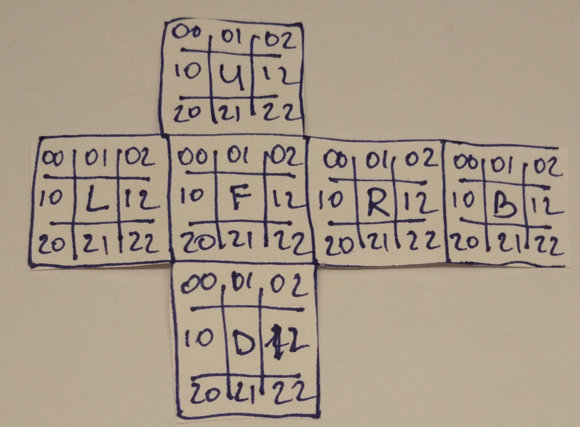 00 01 02
10 U 12
20 21 22
00 01 02 00 01 02 00 01 02 00 01 02
10 L 12 10 F 12 10 R 12 10 B 12
20 21 22 20 21 22 20 21 22 20 21 22
00 01 02
10 D 12
20 21 22